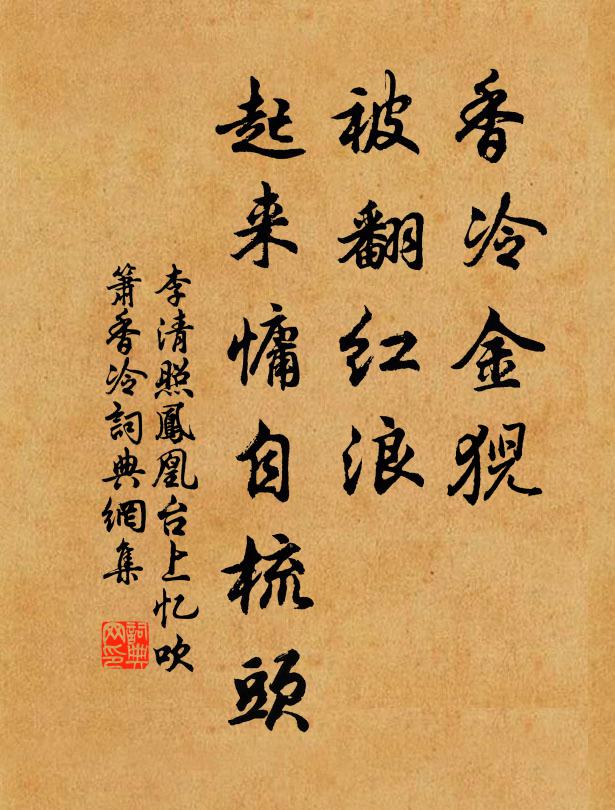 香冷金猊
被翻红浪
起来慵自梳头
李清照鳳凰台上忆吹
簫香冷詞典網集
詞典
网印